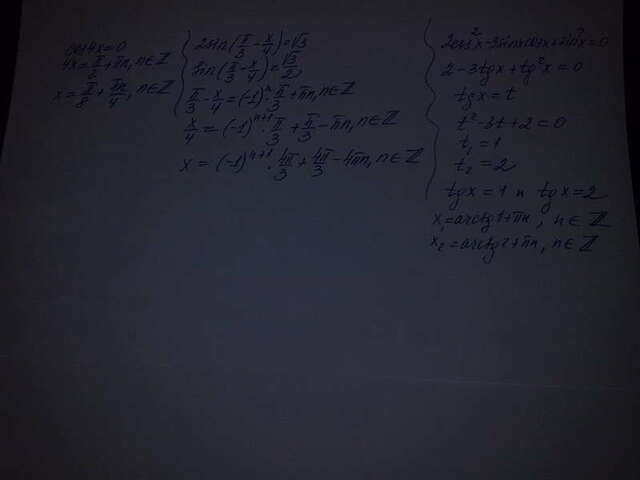 cos4x=0
4x=π/2+πn, n∈ℤ
x=π/8+πn/4, n∈ℤ
2sin(π/3-x/4)=√3
sin(π/3-x/4)=√3/2
π/3-x/4=(-1)ⁿ·π/3+πn, n∈ℤ
x/4=(-1)ⁿ⁺¹·π/3+π/3-πn, n∈ℤ
x=(-1)ⁿ⁺¹·4π/3+4π/3-4πn, n∈ℤ
2cos²x-3sinxcosx+sin²x=0
2-3tgx+tg²x=0
tgx=t
t²-3t+2=0
t₁=1
t₂=2
tgx=1 и tgx=2
x₁=arctg1+πn, n∈ℤ
x₂=arctg2+πn, n∈ℤ